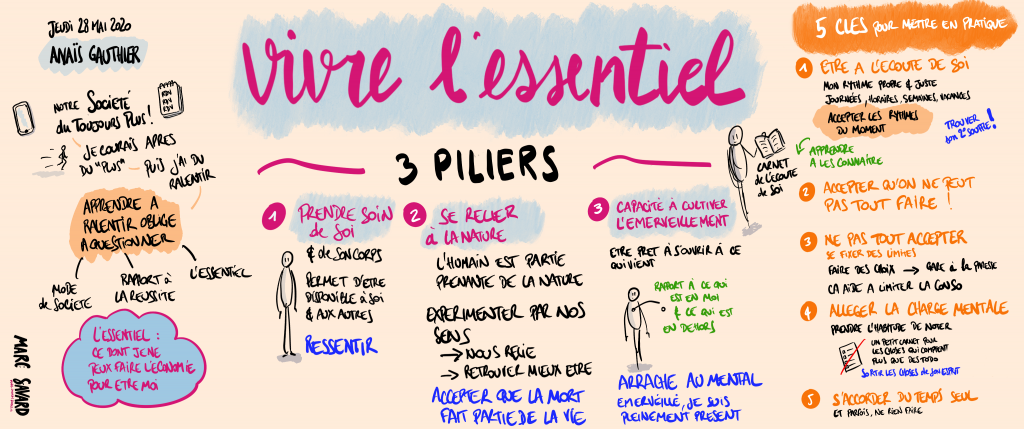 JEUDI 28 MAI 2020
ANAÏS GAUTHIER
vivre l'essentiel
NOTRE SOCIÉTÉ
du TOUJOURS PLUS !
JE COURAIS APRES
DU "PLUS"
PUIS J'AI DU
RALENTIR
APPRENDRE A
RALENTIR OBLIGE
A QUESTIONNER
MODE
de SOCIETE
RAPPORT À
LA REUSSITE
L'ESSENTIEL
L'ESSENTIEL :
CE DONT JE NE
PEUX FAIRE L'ÉCONOMIE
POUR ETRE MOI
MARC SAVARD
3 PILIERS
1 PRENDRE SOIN
de SOI
& de SON CORPS
PERMET D'ETRE
DISPONIBLE À SOI
& AUX AUTRES
RESSENTIR
2 SE RELIER
à LA NATURE
L'HUMAIN EST PARTIE
PRENANTE DE LA NATURE
EXPERIMENTER PAR NOS
SENS
→ NOUS RELIE
→ RETROUVER MIEUX ETRE
ACCEPTER QUE LA MORT
FAIT PARTIE DE LA VIE
3 CAPACITÉ À CULTIVER
L'EMERVEILLEMENT
ETRE PRET À S'OUVRIR À CE
QUI VIENT
RAPPORT À CE QUI
EST EN MOI
& CE QUI EST
EN DEHORS
ARRACHE AU MENTAL
EMERVEILLÉ, JE SUIS
PLEINEMENT PRESENT
CARNET
de L'ECOUTE
de SOI
5 CLES POUR METTRE EN PRATIQUE
1 ETRE A L'ECOUTE DE SOI
MON RYTHME PROPRE & JUSTE
JOURNÉES, HORAIRES, SEMAINES, VACANCES
ACCEPTER LES RYTMES
DU MOMENT
TROUVER
son 2e SOUFFLE !
APPRENDRE
A LES CONNAITRE
2 ACCEPTER QU'ON NE PEUT
PAS TOUT FAIRE !
3 NE PAS TOUT ACCEPTER
SE FIXER DES LIMITES
FAIRE DES CHOIX → GARE à la PARESSE
CA AIDE A LIMITER LA CONSO
4 ALLEGER LA CHARGE MENTALE
PRENDRE L'HABITUDE DE NOTER
UN PETIT CARNET POUR
LES CHOSES QUI COMPTENT
PLUS QUE DES TODO
SORTIR LES CHOSES DE SON ESPRIT
5 S'ACCORDER DU TEMPS SEUL
ET PARFOIS, NE RIEN FAIRE